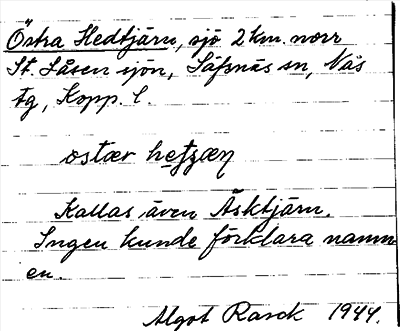 Östra Hedtjärn, sjö 2 km. norr
St. Låsen sjön, Säfsnäs sn, Näs
tg, Kopp. l.
ostær
Kallas även Äsktjärn.
Ingen kunde förklara namn-
en.
Algot Rasck 1944.